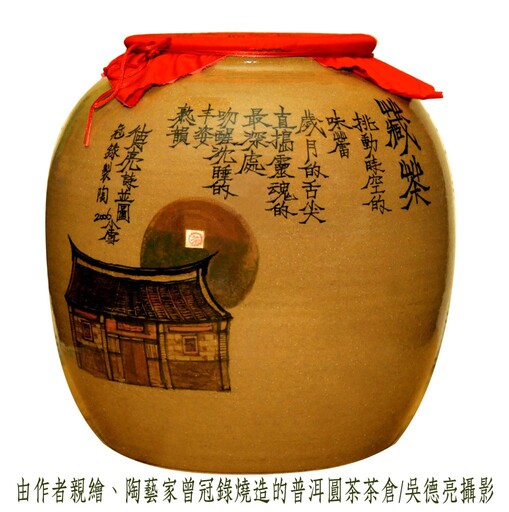 藏茶
挑動時空的
味蕾
歲月的舌尖
直搗靈魂的
最深處
吻醒沈睡的
丰姿
熟韻
德亮詩並圖
冠錄製陶 2006
由作者親繪、陶藝家曾冠錄燒造的普洱圓茶茶倉/吳德亮攝影